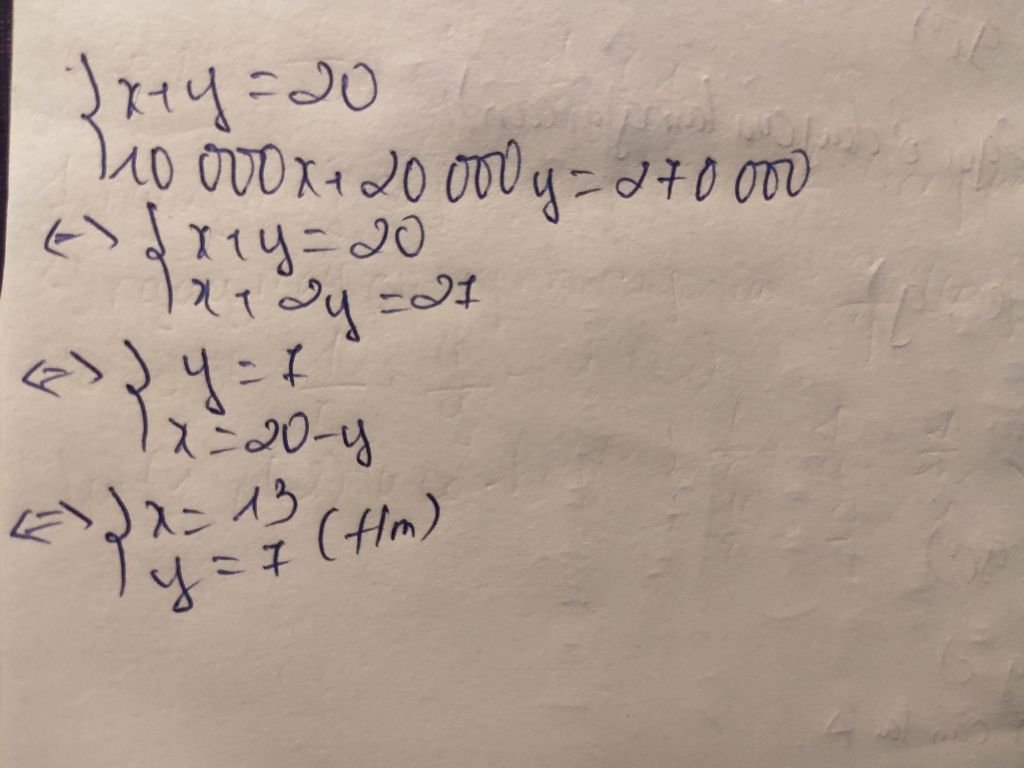 { x + y = 20
10 000x + 20 000y = 270 000
<=> { x + y = 20
x + 2y = 27
<=> { y = 7
x = 20 - y
<=> { x = 13
y = 7 (t/m)